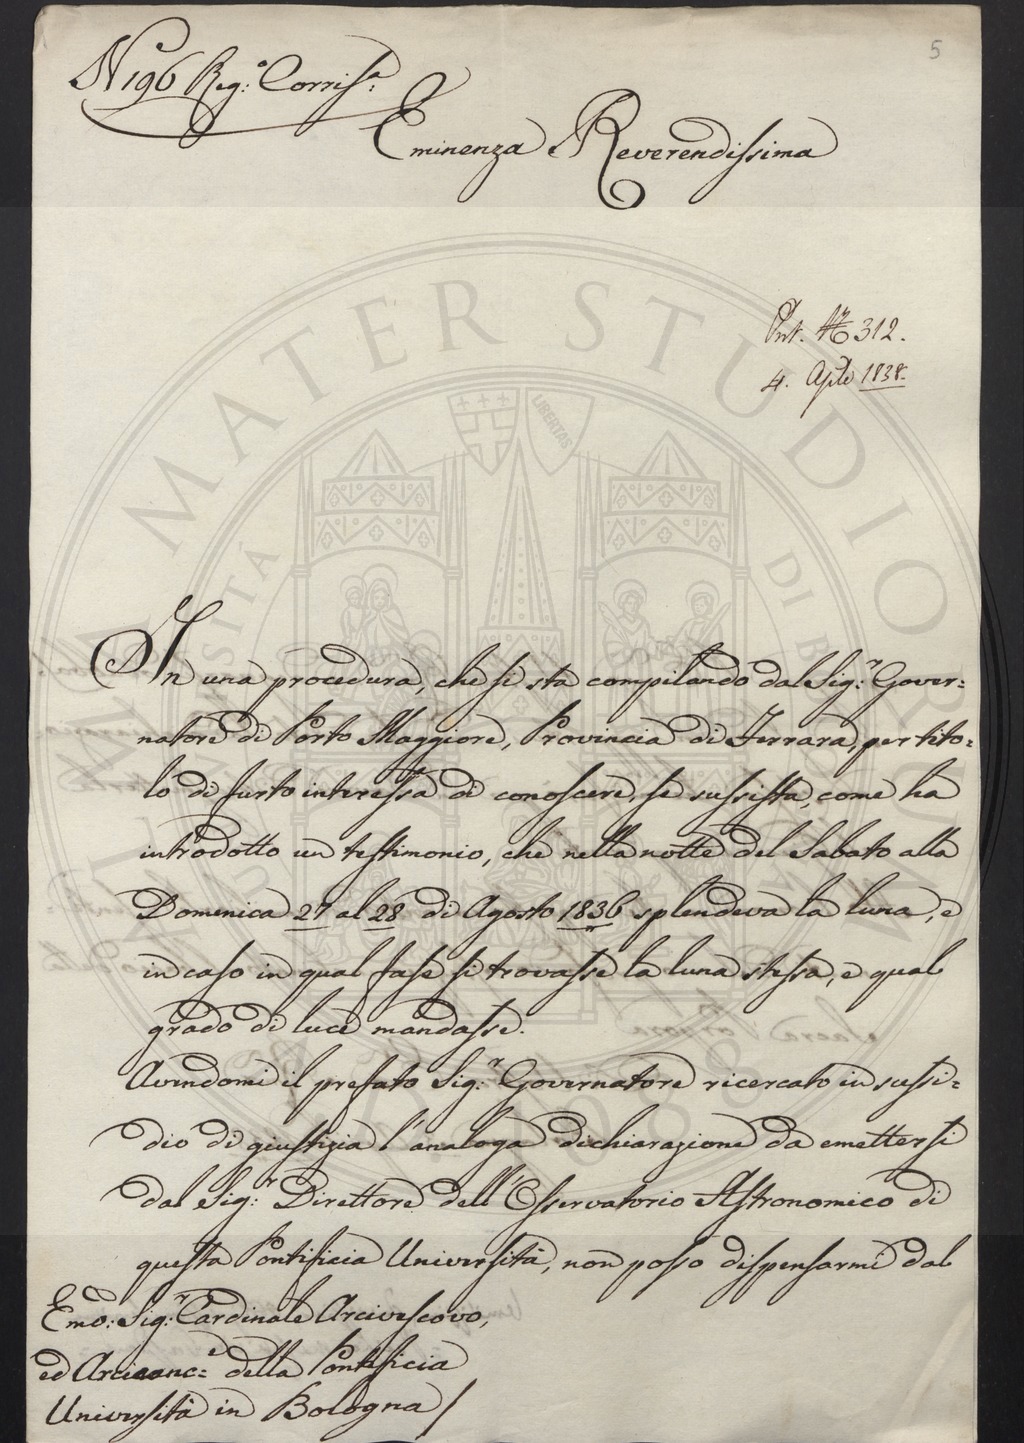 N° 196 Reg:° Corrisp:ª
5
Eminenza Reverendissima
Prot. N° 312.
4. Aple 1838.
In una procedura, che si stà compilando dal Sig:r Gover=
natore di Porto Maggiore, Provincia di Ferrara, per tito=
lo di furto interessa di conoscere, se sussista, come ha
introdotto un testimonio, che nella notte del Sabato alla
Domenica 27 al 28 di Agosto 1836 splendeva la luna, e
in caso in qual fase si trovasse la luna stessa, e qual
grado di luce mandasse.
Avendomi il prefato Sig:r Governatore ricercato in sussi=
dio di giustizia l'analoga dichiarazione da emettersi
dal Sig:r Direttore dell'Osservatorio Astronomico di
questa Pontificia Università, non posso dispensarmi dal
Emo: Sig:r Cardinale Arcivescovo,
ed Arcicanc:e della Pontificia
Università in Bologna /
ALMA MATER STUDIORUM
UNIVERSITÀ DI BOLOGNA
LIBERTAS
1088